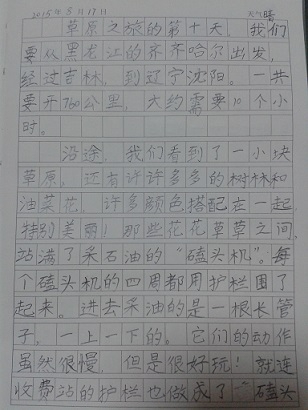 2015年8月17日 天气晴
草原之旅的第十天，我们
要从黑龙江的齐齐哈尔出发，
经过吉林，到辽宁沈阳。一共
要开760公里，大约需要10个小
时。
沿途，我们看到了一小块
草原，还有许许多多的树林和
油菜花，许多颜色搭配在一起，
特别美丽！那些花花草草之间，
站满了采石油的“磕头机”。每
个磕头机的四周都用护栏围了
起来。进去采油的是一根长管
子，一上一下的。它们的动作
虽然很慢，但是很好玩！就连
收费站的护栏也做成了“磕头